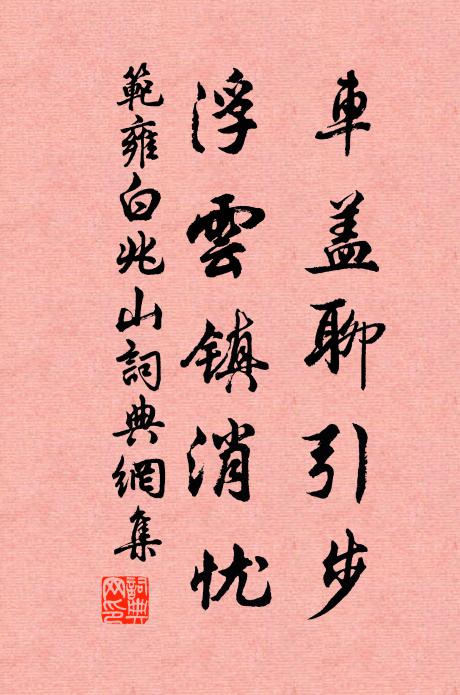 車盖聊引步
浮雲镇消忧
範雍白兆山詞典網集
詞典網印